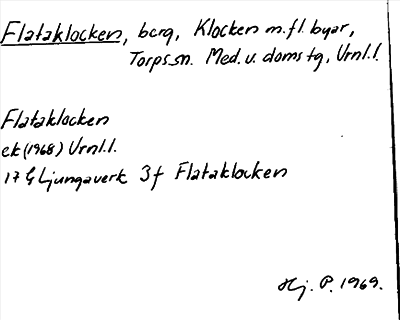 Flataklocken, berg, Klocken m.fl. byar,
Torps sn. Med. v. domstg, Vrnl.l.
Flataklocken
ek (1968) Vrnl.l.
17 G Ljungaverk 3f Flataklocken
Hj. P. 1969.